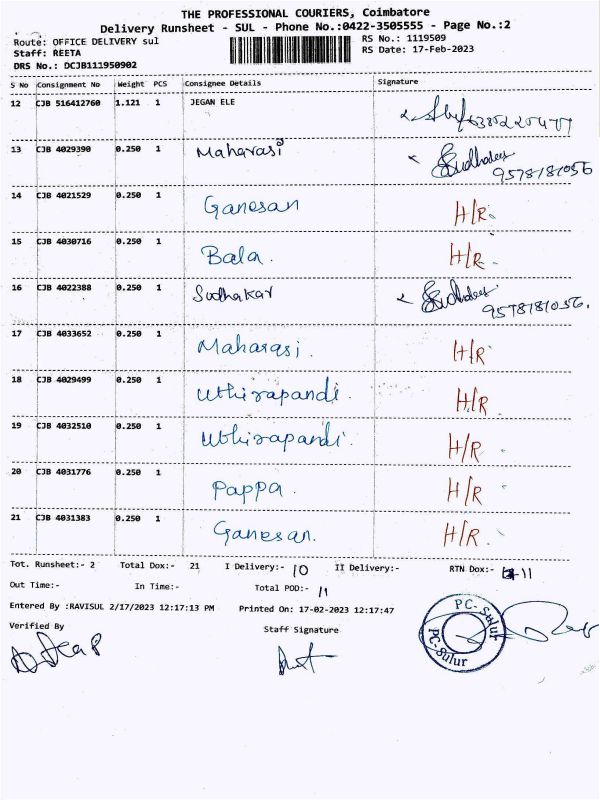 THE PROFESSIONAL COURIERS, Coimbatore
Delivery Runsheet - SUL - Phone No.:0422-3505555 - Page No.:2
Route: OFFICE DELIVERY sul RS No.: 1119509
Staff: REETA RS Date: 17-Feb-2023
DRS No.: DCJB111950902
S No Consignment No Weight PCS Consignee Details Signature
12 CJB 516412760 1.121 1 JEGAN ELE
13 CJB 4029390 0.250 1 Maharasi Sudhakar
9578181056
14 CJB 4021529 0.250 1 Ganesan H/R
15 CJB 4030716 0.250 1 Bala. H/R
16 CJB 4022388 0.250 1 Sudhakar
9578181056.
17 CJB 4033652 0.250 1 Maharasi. H/R
18 CJB 4029499 0.250 1 Uthirapandi. H/R
19 CJB 4032510 0.250 1 Uthirapandi. H/R
20 CJB 4031776 0.250 1 Pappa. H/R
21 CJB 4031383 0.250 1 Ganesan. H/R.
Tot. Runsheet:- 2 Total Dox:- 21 I Delivery:- 10 II Delivery:- RTN Dox:- 11
Out Time:- In Time:- Total POD:- 11
Entered By :RAVISUL 2/17/2023 12:17:13 PM Printed On: 17-02-2023 12:17:47
Verified By Staff Signature
PC-Sulur
PC-Sulur